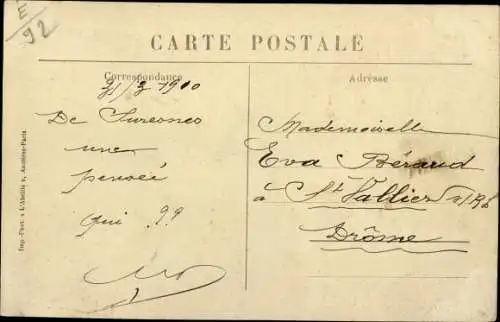 E
92
CARTE POSTALE
Correspondance
Adresse
31/3 1910
De Suresnes
une
pensée
qui ??
Mademoiselle
Eva Béraud
à St Vallier s/Rh
Drôme
Imp.-Phot. « L'Abeille », Asnières-Paris